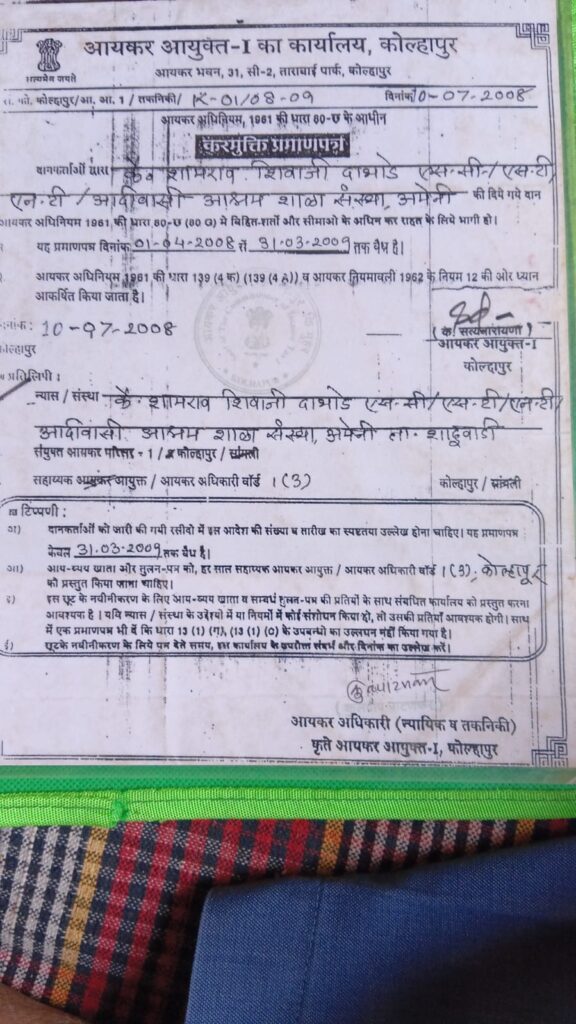 आयकर आयुक्त-I का कार्यालय, कोल्हापुर
सत्यमेव जयते
आयकर भवन, 31, सी-2, ताराबाई पार्क, कोल्हापुर
फो. कोल्हापुर/आ. आ. 1 / तकनिकी/ K-01/08-09 दिनांक 10-07-2008
आयकर अधिनियम, 1961 की धारा 80-छ के आधीन
करमुक्ति प्रमाणपत्र
दानकर्ताओं द्वारा कै. शामराव शिवाजी दाभोडे एस.सी./एस.टी
एन.टी/आदीवासी आश्रम शाळा संस्था, अमेनी की दिये गये दान
आयकर अधिनियम 1961 की धारा 80-छ (80 G) मे विहित-शर्तो और सीमाओ के अधिन कर राहत के लिये भागी हो।
यह प्रमाणपत्र दिनांक 01-04-2008 से 31-03-2009 तक वैध है।
आयकर अधिनियम 1961 की धारा 139 (4 क) (139 (4 A)) व आयकर नियमावली 1962 के नियम 12 की ओर ध्यान
आकर्षित किया जाता है।
दिनांक: 10-07-2008
कोल्हापुर
(के. सत्यनारायणा)
आयकर आयुक्त-I
कोल्हापुर
प्रतिलिपी :
न्यास / संस्था कै. शामराव शिवाजी दाभोडे एस.सी/एस.टी/एन.टी/
आदीवासी आश्रम शाळा संस्था, अमेनी ता. शाहूवाडी
संयुक्त आयकर परिसर - 1 / कोल्हापुर / सांगली
सहाय्यक आयकर आयुक्त / आयकर अधिकारी वॉर्ड 1(3) कोल्हापुर / सांगली
टिप्पणी :
अ) दानकर्ताओं को जारी की गयी रसीदो में इस आदेश की संख्या व तारीख का स्पष्टतया उल्लेख होना चाहिए। यह प्रमाणपत्र
केवल 31-03-2009 तक वैध है।
आ) आय-व्यय खाता और तुलन-पत्र को, हर साल सहाय्यक आयकर आयुक्त / आयकर अधिकारी वॉर्ड 1(3), कोल्हापूर
को प्रस्तुत किया जाना चाहिए।
इ) इस छूट के नवीनीकरण के लिए आय-व्यय खाता व सम्बधं तुलन-पत्र की प्रतियों के साथ संबंधित कार्यालय को प्रस्तुत करना
आवश्यक है। यदि न्यास / संस्था के उद्देशों में या नियमों में कोई संशोधन किया हो, तो उसकी प्रतियाँ आवश्यक होगी। साथ
में एक प्रमाणपत्र भी दें कि धारा 13 (1) (ग), (13 (1) (C) के उपबन्धो का उल्लघन नही किया गया है।
ई) छूटके नवीनीकरण के लिये पत्र देते समय, इस कार्यालय के उपरोक्त संदर्भ और दिनांक का उल्लेख करें।
आयकर अधिकारी (न्यायिक व तकनिकी)
कृते आयकर आयुक्त-I, कोल्हापुर